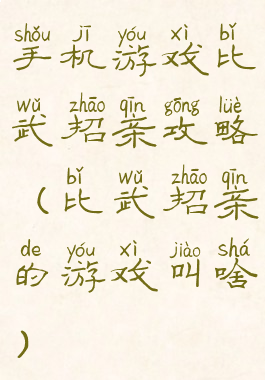 shǒu jī yóu xì bǐ
手机游戏比
wǔ zhāo qīn gōng lüè
武招亲攻略
bǐ wǔ zhāo qīn
（比武招亲
de yóu xì jiào shá
的游戏叫啥
）